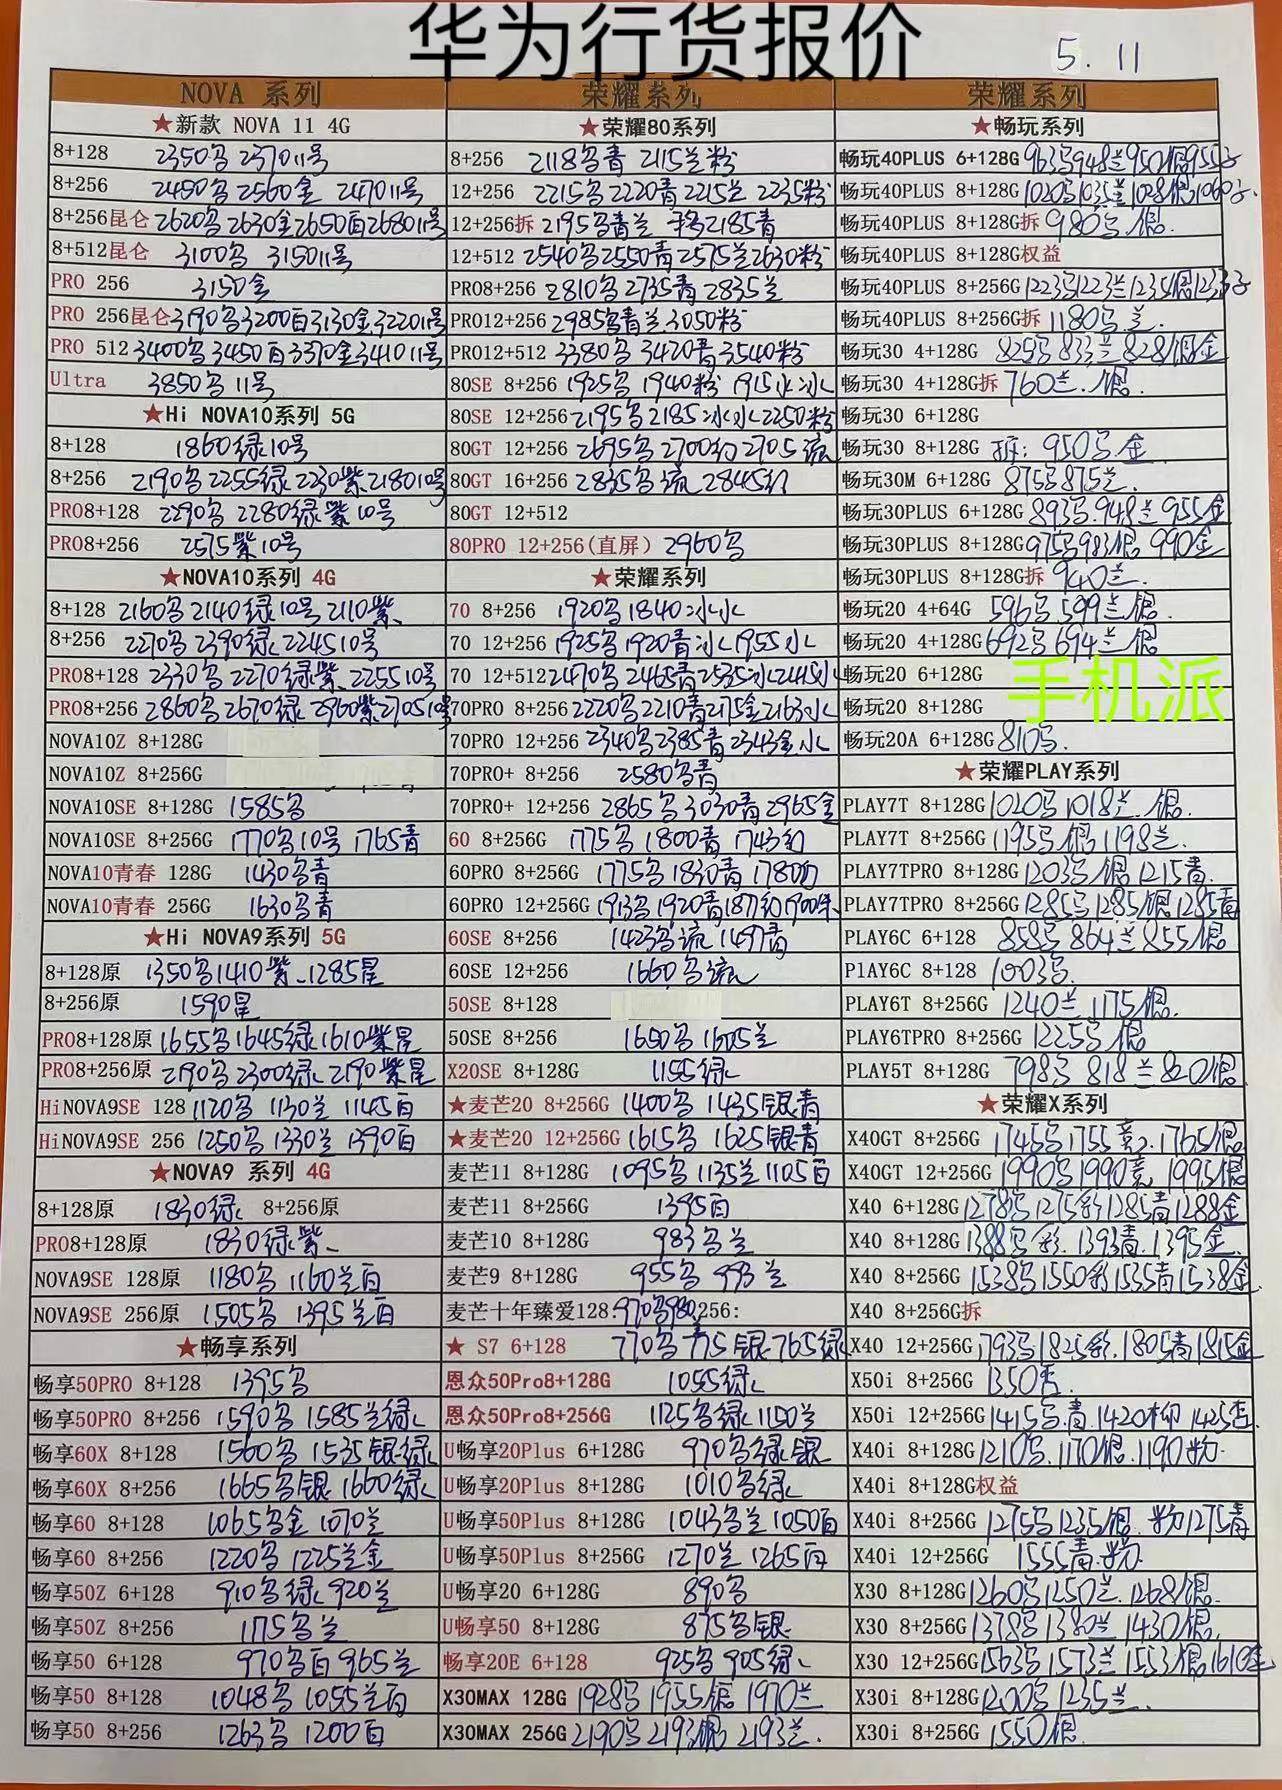 华为行货报价
5.11
NOVA 系列
★新款 NOVA 11 4G
8+128 2350鸟 2370 11号
8+256 2450鸟 2560金 2470 11号
8+256昆仑 2620鸟 2630金 2650百 2680 11号
8+512昆仑 3100鸟 3150 11号
PRO 256 3150金
PRO 256昆仑 3190鸟 3200百 3130金 3220 11号
PRO 512 3400鸟 3450百 3370金 3410 11号
Ultra 3850鸟 11号
★Hi NOVA10系列 5G
8+128 1860绿 10号
8+256 2190鸟 2255绿 2230紫 2180 10号
PRO8+128 2290鸟 2280绿紫 10号
PRO8+256 2575紫 10号
★NOVA10系列 4G
8+128 2160鸟 2140绿 10号 2110紫
8+256 2270鸟 2390绿 2245 10号
PRO8+128 2330鸟 2270绿紫 2255 10号
PRO8+256 2860鸟 2670绿 2960紫 2705 10号
NOVA10Z 8+128G
NOVA10Z 8+256G
NOVA10SE 8+128G 1585鸟
NOVA10SE 8+256G 1770鸟 10号 1765青
NOVA10青春 128G 1430鸟青
NOVA10青春 256G 1630鸟青
★Hi NOVA9系列 5G
8+128原 1350鸟 1410紫 1285星
8+256原 1590星
PRO8+128原 1655鸟 1645绿 1610紫星
PRO8+256原 2190鸟 2300绿 2190紫星
HiNOVA9SE 128 1120鸟 1130兰 1145百
HiNOVA9SE 256 1250鸟 1330兰 1390百
★NOVA9 系列 4G
8+128原 1830绿 8+256原
PRO8+128原 1830绿紫
NOVA9SE 128原 1180鸟 1160兰百
NOVA9SE 256原 1505鸟 1395兰百
★畅享系列
畅享50PRO 8+128 1395鸟
畅享50PRO 8+256 1590鸟 1585兰绿
畅享60X 8+128 1560鸟 1535银绿
畅享60X 8+256 1665鸟银 1660绿
畅享60 8+128 1065鸟金 1070兰
畅享60 8+256 1220鸟 1225兰金
畅享50Z 6+128 910鸟绿 920兰
畅享50Z 8+256 1175鸟兰
畅享50 6+128 970鸟百 965兰
畅享50 8+128 1048鸟 1055兰百
畅享50 8+256 1263鸟 1200百
荣耀系列
★荣耀80系列
8+256 2118鸟青 2115兰粉
12+256 2215鸟 2220青 2215兰 2235粉
12+256拆 2195鸟青兰 2185青
12+512 2540鸟 2550青 2575兰 2630粉
PRO8+256 2810鸟 2735青 2835兰
PRO12+256 2985鸟青兰 3050粉
PRO12+512 3380鸟 3420青 3540粉
80SE 8+256 1925鸟 1940粉 1915冰水
80SE 12+256 2195鸟 2185冰水 2250粉
80GT 12+256 2695鸟 2700幻 2705流
80GT 16+256 2835鸟流 2845幻
80GT 12+512
80PRO 12+256(直屏) 2960鸟
★荣耀系列
70 8+256 1920鸟 1840冰水
70 12+256 1925鸟 1920青冰 1955水
70 12+512 2470鸟 2465青 2535冰 2445水
70PRO 8+256 2220鸟 2210青 2175金 2163水
70PRO 12+256 2340鸟 2385青 2343金水
70PRO+ 8+256 2580鸟青
70PRO+ 12+256 2865鸟 3030青 2965金
60 8+256G 1775鸟 1800青 1743幻
60PRO 8+256G 1775鸟 1830青 1780幻
60PRO 12+256G 1913鸟 1920青 1877幻 1900朱
60SE 8+256 1423鸟流 1497青
60SE 12+256 1660鸟流
50SE 8+128
50SE 8+256 1650鸟 1605兰
X20SE 8+128G 1155绿
★麦芒20 8+256G 1400鸟 1435银青
★麦芒20 12+256G 1615鸟 1625银青
麦芒11 8+128G 1095鸟 1135兰 1105百
麦芒11 8+256G 1395百
麦芒10 8+128G 983鸟兰
麦芒9 8+128G 955鸟 993兰
麦芒十年臻爱128:970鸟980 256:
★ S7 6+128 770鸟 775银 765绿
恩众50Pro8+128G 1055绿
恩众50Pro8+256G 1125鸟绿 1150兰
U畅享20Plus 6+128G 970鸟绿银
U畅享20Plus 8+128G 1010鸟绿
U畅享50Plus 8+128G 1043鸟兰 1050百
U畅享50Plus 8+256G 1270兰 1265百
U畅享20 6+128G 890鸟
U畅享50 8+128G 875鸟银
畅享20E 6+128 925鸟 905绿
X30MAX 128G 1928鸟 1955银 1970兰
X30MAX 256G 2190鸟 2193银 2193兰.
荣耀系列
★畅玩系列
畅玩40PLUS 6+128G 963鸟 948兰 950银 955子
畅玩40PLUS 8+128G 1020鸟 1035兰 1028银 1060子.
畅玩40PLUS 8+128G拆 980鸟.银.
畅玩40PLUS 8+128G权益
畅玩40PLUS 8+256G 1223鸟 1223兰 1235银 1233子
畅玩40PLUS 8+256G拆 1180鸟.兰.
畅玩30 4+128G 825鸟 833兰 828银金
畅玩30 4+128G拆 760兰.银.
畅玩30 6+128G
畅玩30 8+128G 拆: 950鸟.金.
畅玩30M 6+128G 875鸟 875兰.
畅玩30PLUS 6+128G 893鸟 948兰 955金
畅玩30PLUS 8+128G 975鸟 983银 990金
畅玩30PLUS 8+128G拆 940兰.
畅玩20 4+64G 596鸟 599兰银
畅玩20 4+128G 692鸟 694兰银
畅玩20 6+128G
手机派
畅玩20 8+128G
畅玩20A 6+128G 810鸟.
★荣耀PLAY系列
PLAY7T 8+128G 1020鸟 1018兰.银.
PLAY7T 8+256G 1195鸟银 1198兰.
PLAY7TPRO 8+128G 1203鸟.银 1215青.
PLAY7TPRO 8+256G 1285鸟 1285银 1285青
PLAY6C 6+128 858鸟 864兰 855银
PlAY6C 8+128 1003鸟.
PLAY6T 8+256G 1240兰.1175银.
PLAY6TPRO 8+256G 1225鸟银
PLAY5T 8+128G 798鸟 818兰 820银
★荣耀X系列
X40GT 8+256G 1745鸟 1755竞.1765银
X40GT 12+256G 1990鸟 1990竞 1995银
X40 6+128G 1278鸟 1275彩 1285青 1288金
X40 8+128G 1388鸟彩.1393青.1395金.
X40 8+256G 1538鸟 1550彩 1535青 1538金
X40 8+256G拆
X40 12+256G 1793鸟 1825彩.1805青 1815金
X50i 8+256G 1350杏.
X50i 12+256G 1415鸟.青.1420柳 1425杏
X40i 8+128G 1210鸟.1170银.1190粉.
X40i 8+128G权益
X40i 8+256G 1275鸟 1235银.粉 1275青
X40i 12+256G 1555青.粉.
X30 8+128G 1260鸟 1250兰.1268银.
X30 8+256G 1378鸟 1380兰 1430银.
X30 12+256G 1563鸟 1573兰 1553银 1610金
X30i 8+128G 1200鸟 1235兰.
X30i 8+256G 1550银.